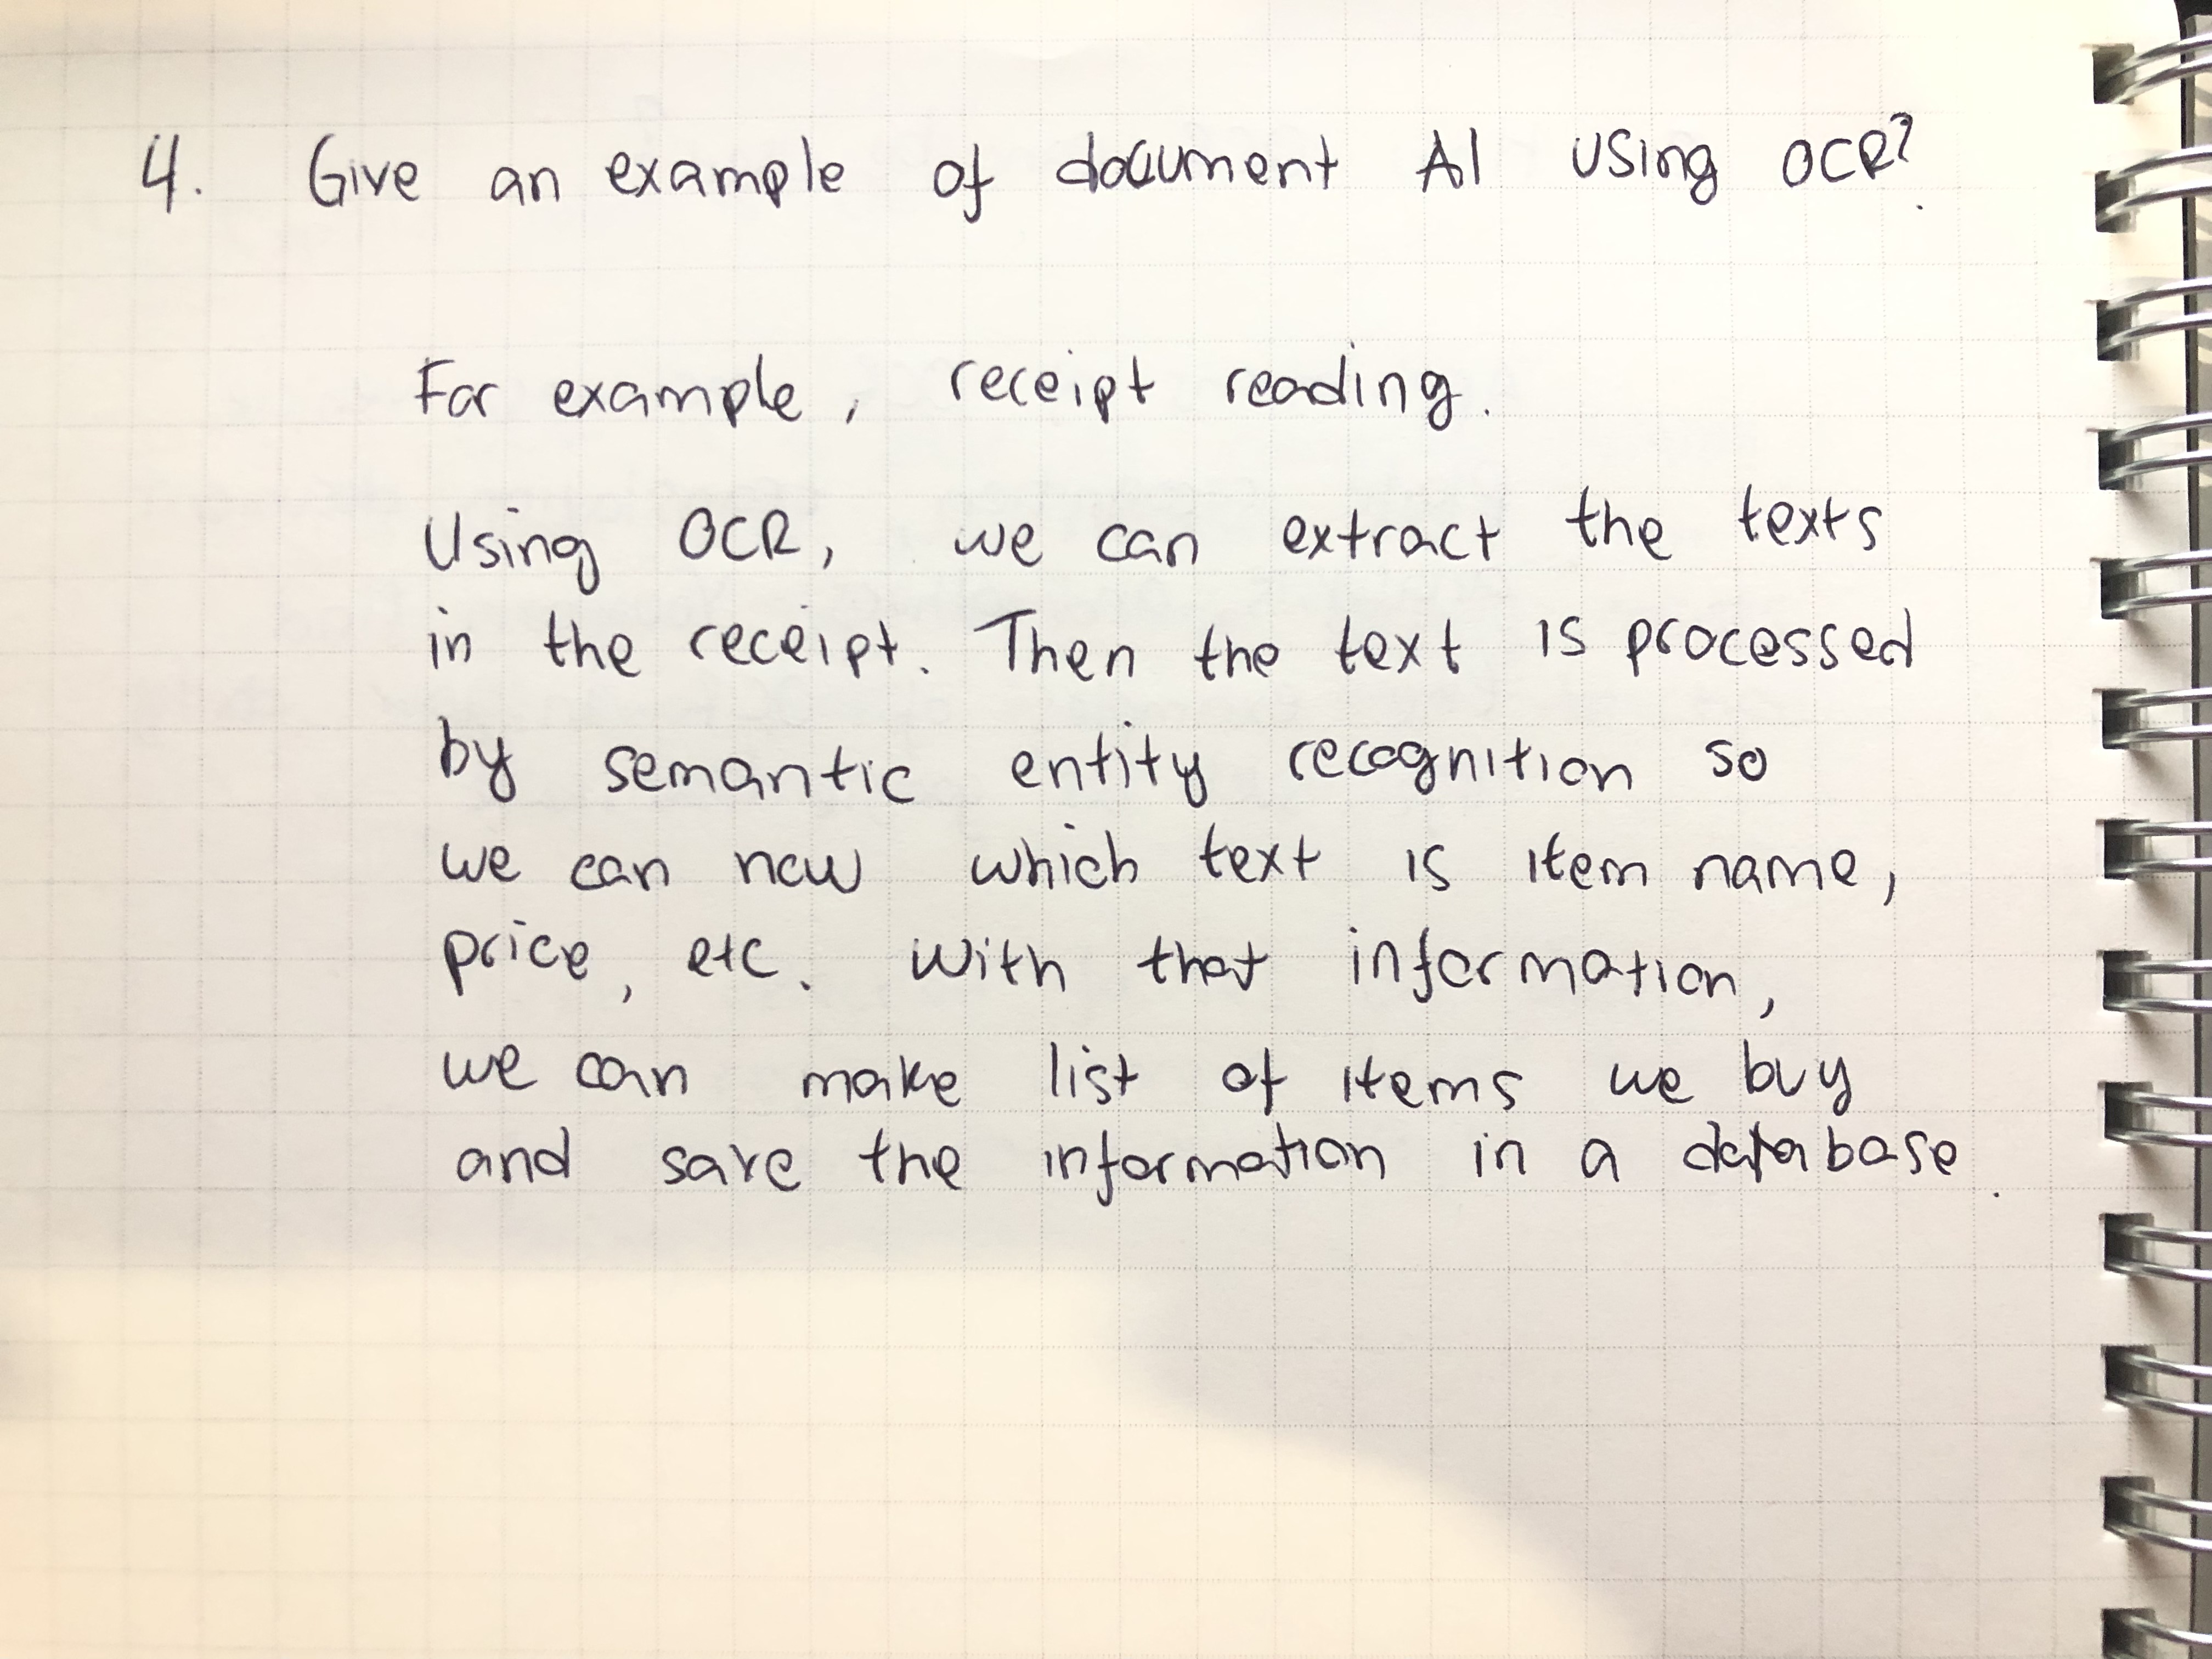 4. Give an example of document AI using OCR?
For example, receipt reading.
Using OCR, we can extract the texts
in the receipt. Then the text is processed
by semantic entity recognition so
we can now which text is item name,
price, etc. With that information,
we can make list of items we buy
and save the information in a database.